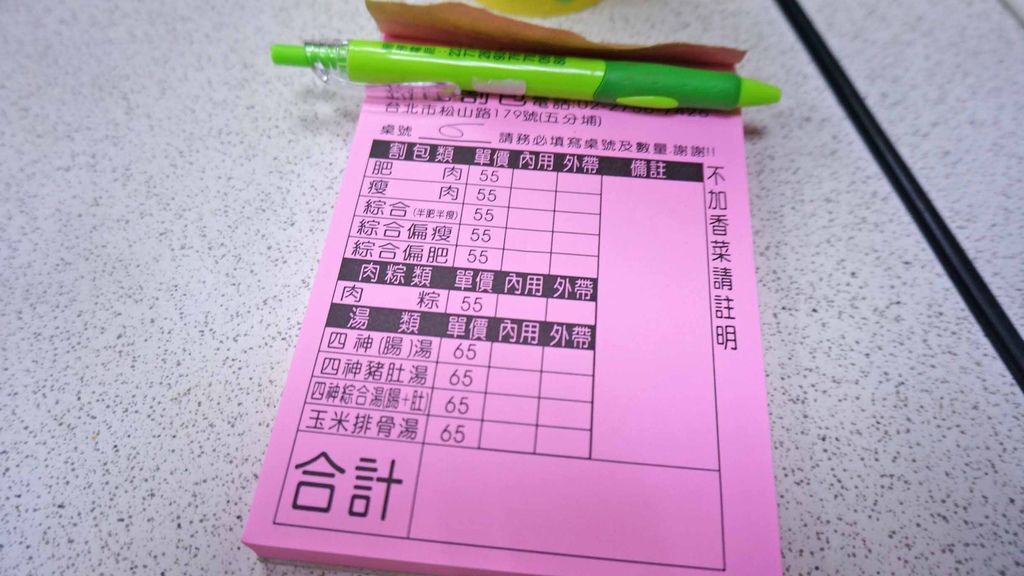 割包 電話:02-2
台北市松山路179號(五分埔)
桌號 6 請務必填寫桌號及數量.謝謝!!
割包類 單價 內用 外帶 備註
肥肉 55
瘦肉 55
綜合(半肥半瘦) 55
綜合偏瘦 55
綜合偏肥 55
肉粽類 單價 內用 外帶
肉粽 55
湯類 單價 內用 外帶
四神(腸)湯 65
四神豬肚湯 65
四神綜合湯(腸+肚) 65
玉米排骨湯 65
合計
不加香菜請註明